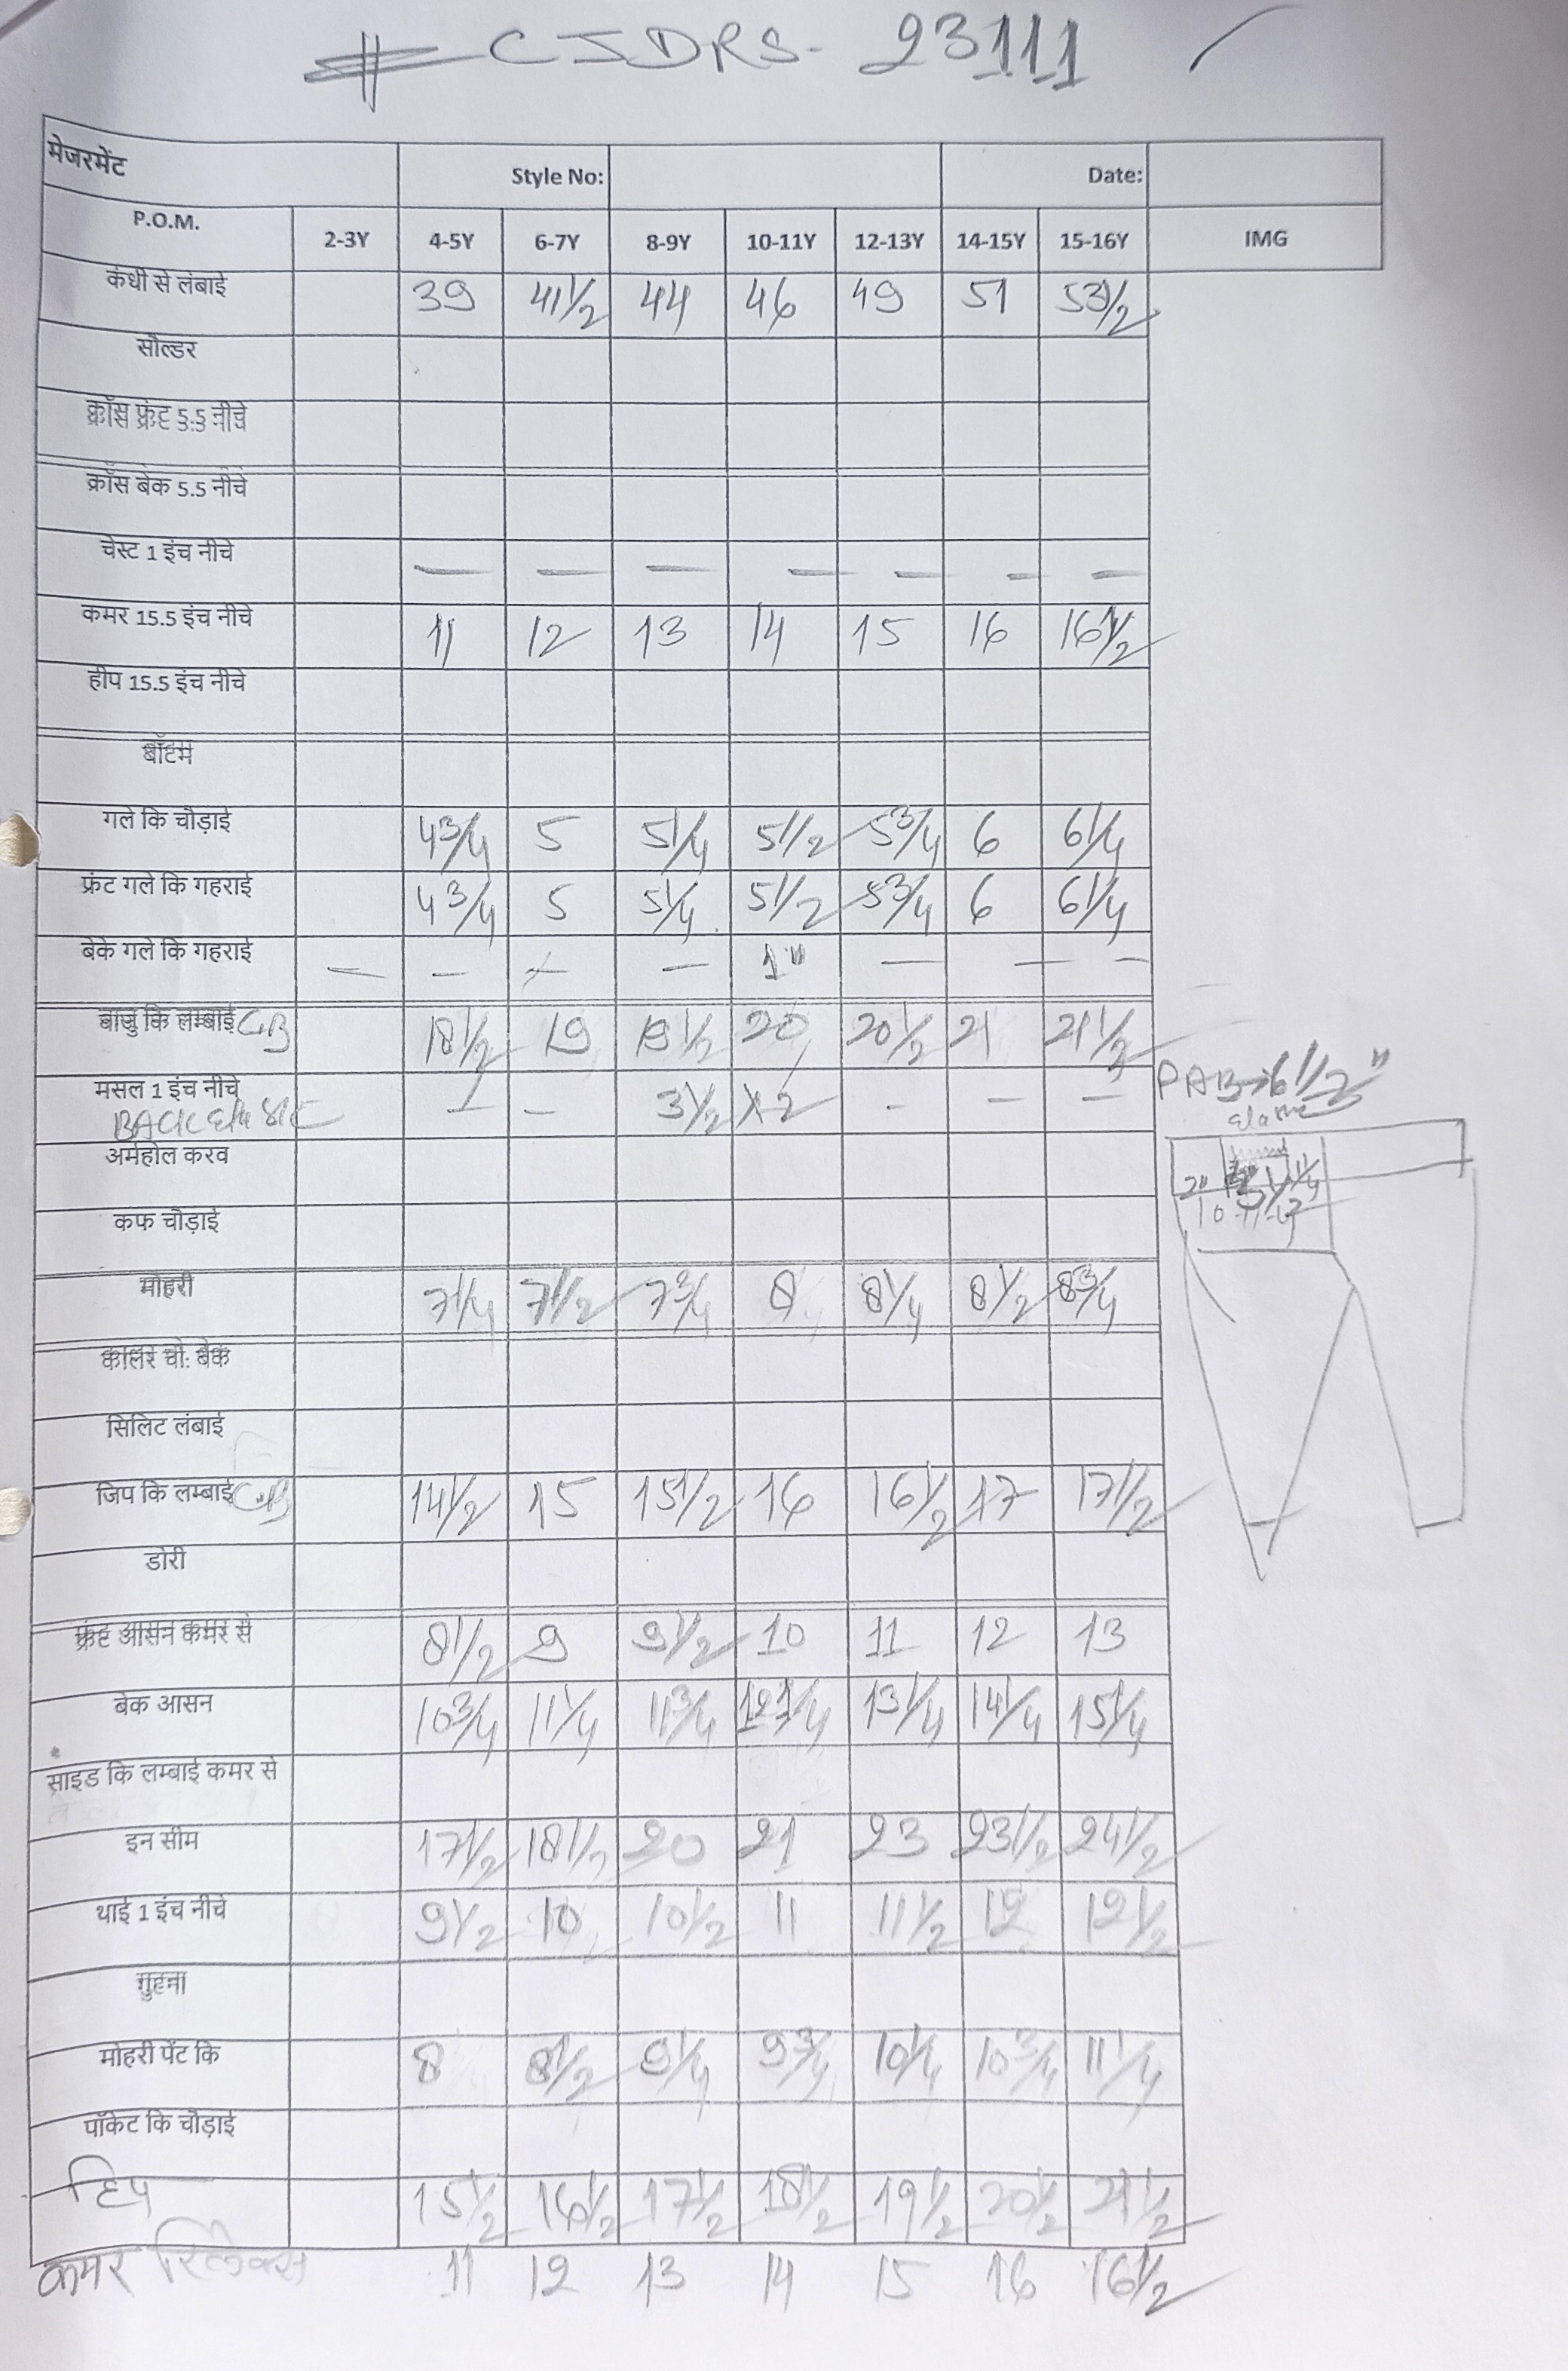 # CJDRS- 23111
मेजरमेंट Style No: Date:
P.O.M. 2-3Y 4-5Y 6-7Y 8-9Y 10-11Y 12-13Y 14-15Y 15-16Y IMG
कंधी से लंबाई 39 41 1/2 44 46 49 51 53 1/2
सोल्डर
क्रॉस फ्रंट 5.5 नीचे
क्रॉस बेक 5.5 नीचे
चेस्ट 1 इंच नीचे — — — — — — —
कमर 15.5 इंच नीचे 11 12 13 14 15 16 16 1/2
हीप 15.5 इंच नीचे
बॉटम
गले कि चौड़ाई 4 3/4 5 5 1/4 5 1/2 5 3/4 6 6 1/4
फ्रंट गले कि गहराई 4 3/4 5 5 1/4 5 1/2 5 3/4 6 6 1/4
बेके गले कि गहराई — — — — 1" — — —
बाजु कि लम्बाई CB 18 1/2 19 19 1/2 20 20 1/2 21 21 1/2
मसल 1 इंच नीचे — — 3 1/2 X 2 - — —
BACK
PAB→6 1/2"
Elastic
2" 1 1/4
अर्महोल करव
कफ चौड़ाई
मोहरी 7 1/4 7 1/2 7 3/4 8 8 1/4 8 1/2 8 3/4
कालर चौ. बेक
सिलिट लंबाई
जिप कि लम्बाई CB 14 1/2 15 15 1/2 16 16 1/2 17 17 1/2
डोरी
फ्रंट आसन कमर से 8 1/2 9 9 1/2 10 11 12 13
बेक आसन 10 3/4 11 1/4 11 3/4 12 1/4 13 1/4 14 1/4 15 1/4
साइड कि लम्बाई कमर से
इन सीम 17 1/2 18 1/2 20 21 23 23 1/2 24 1/2
थाई 1 इंच नीचे 9 1/2 10 10 1/2 11 11 1/2 12 12 1/2
गुहना
मोहरी पेंट कि 8 8 1/2 9 1/4 9 3/4 10 1/4 10 3/4 11 1/4
पॉकेट कि चौड़ाई
हिप 15 1/2 16 1/2 17 1/2 18 1/2 19 1/2 20 1/2 21 1/2
कमर रिलेक्स 11 12 13 14 15 16 16 1/2